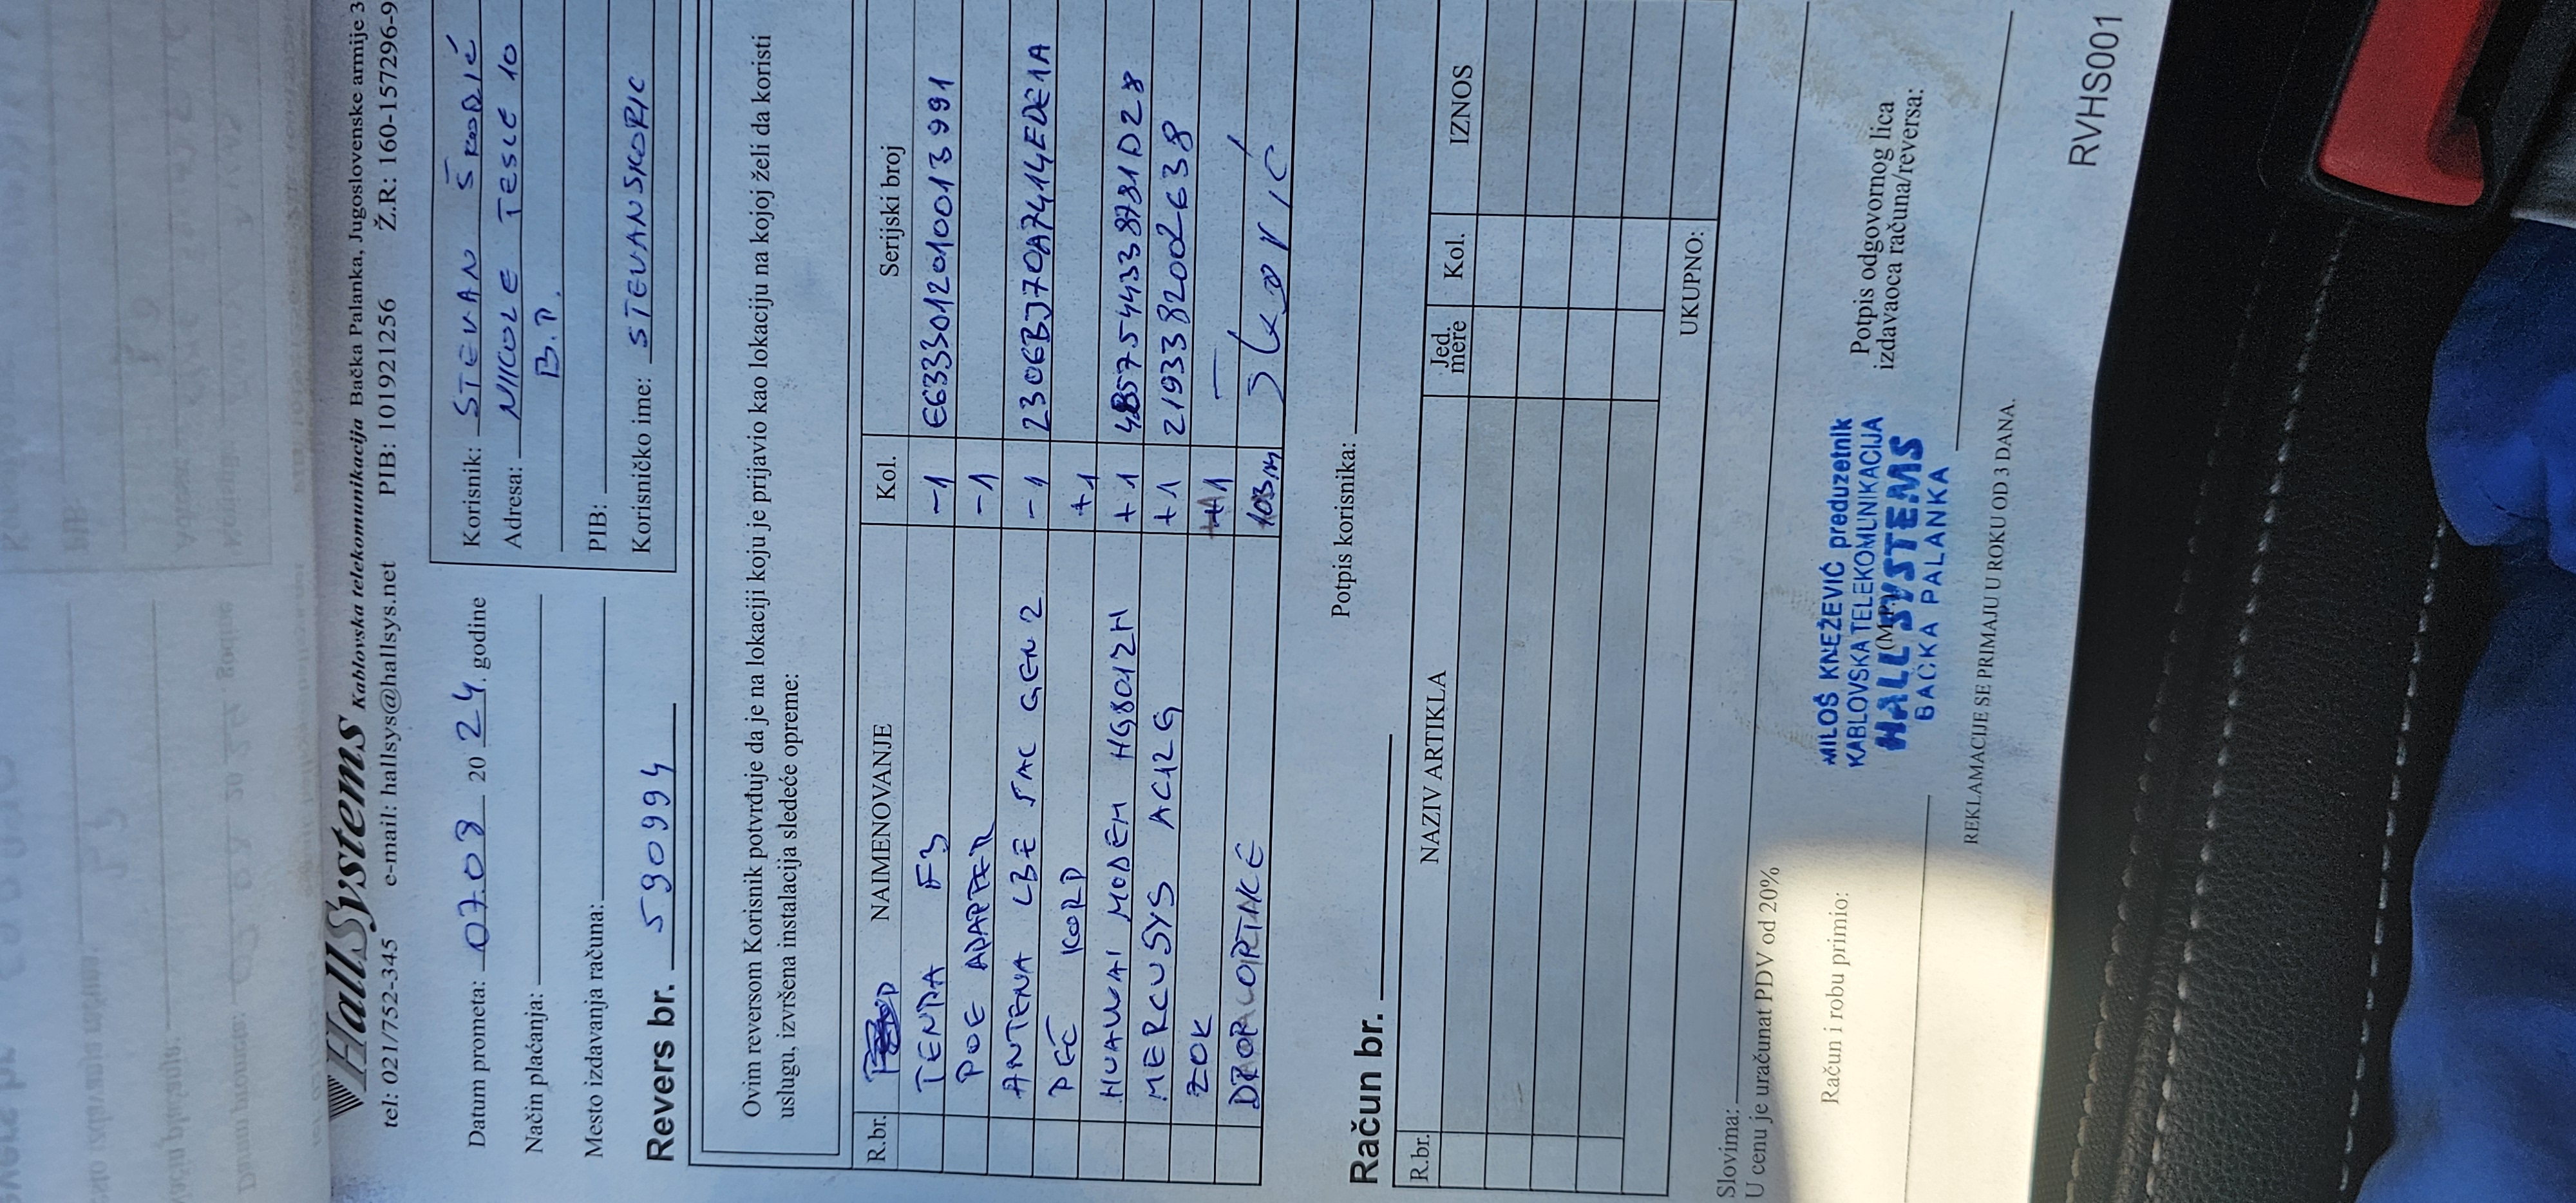 HallSystems Kablovska telekomunikacija Bačka Palanka, Jugoslovenske armije 3
tel: 021/752-345 e-mail: hallsys@hallsys.net PIB: 101921256 Ž.R: 160-157296-9
Datum prometa: 07.08 20 24. godine
Način plaćanja:
Mesto izdavanja računa:
Revers br. 590994
Korisnik: STEVAN ŠKORIĆ
Adresa: NIKOLE TESLE 10
B.P.
PIB:
Korisničko ime: STEVANSKORIC
Ovim reversom Korisnik potvrđuje da je na lokaciji koju je prijavio kao lokaciju na kojoj želi da koristi
uslugu, izvršena instalacija sledeće opreme:
R.br. NAIMENOVANJE Kol. Serijski broj
TENDA F3 -1 E6333012010013991
POE ADAPTER -1
ANTENA LBE 5AC GEN 2 -1 2306BJ70A7414EDE1A
PEČ KORD +1
HUAWAI MODEM HG8012H +1 4857544338781D28
MERCUSYS AC12G +1 2193382002638
ZOK +1 —
DROP OPTIKE 103m Škorić
Potpis korisnika:
Račun br.
R.br. NAZIV ARTIKLA Jed. mere Kol. IZNOS
UKUPNO:
Slovima:
U cenu je uračunat PDV od 20%
Račun i robu primio:
(M.P.)
MILOŠ KNEŽEVIĆ preduzetnik
KABLOVSKA TELEKOMUNIKACIJA
HALL SYSTEMS
BAČKA PALANKA
Potpis odgovornog lica
izdavaoca računa/reversa:
REKLAMACIJE SE PRIMAJU U ROKU OD 3 DANA.
RVHS001